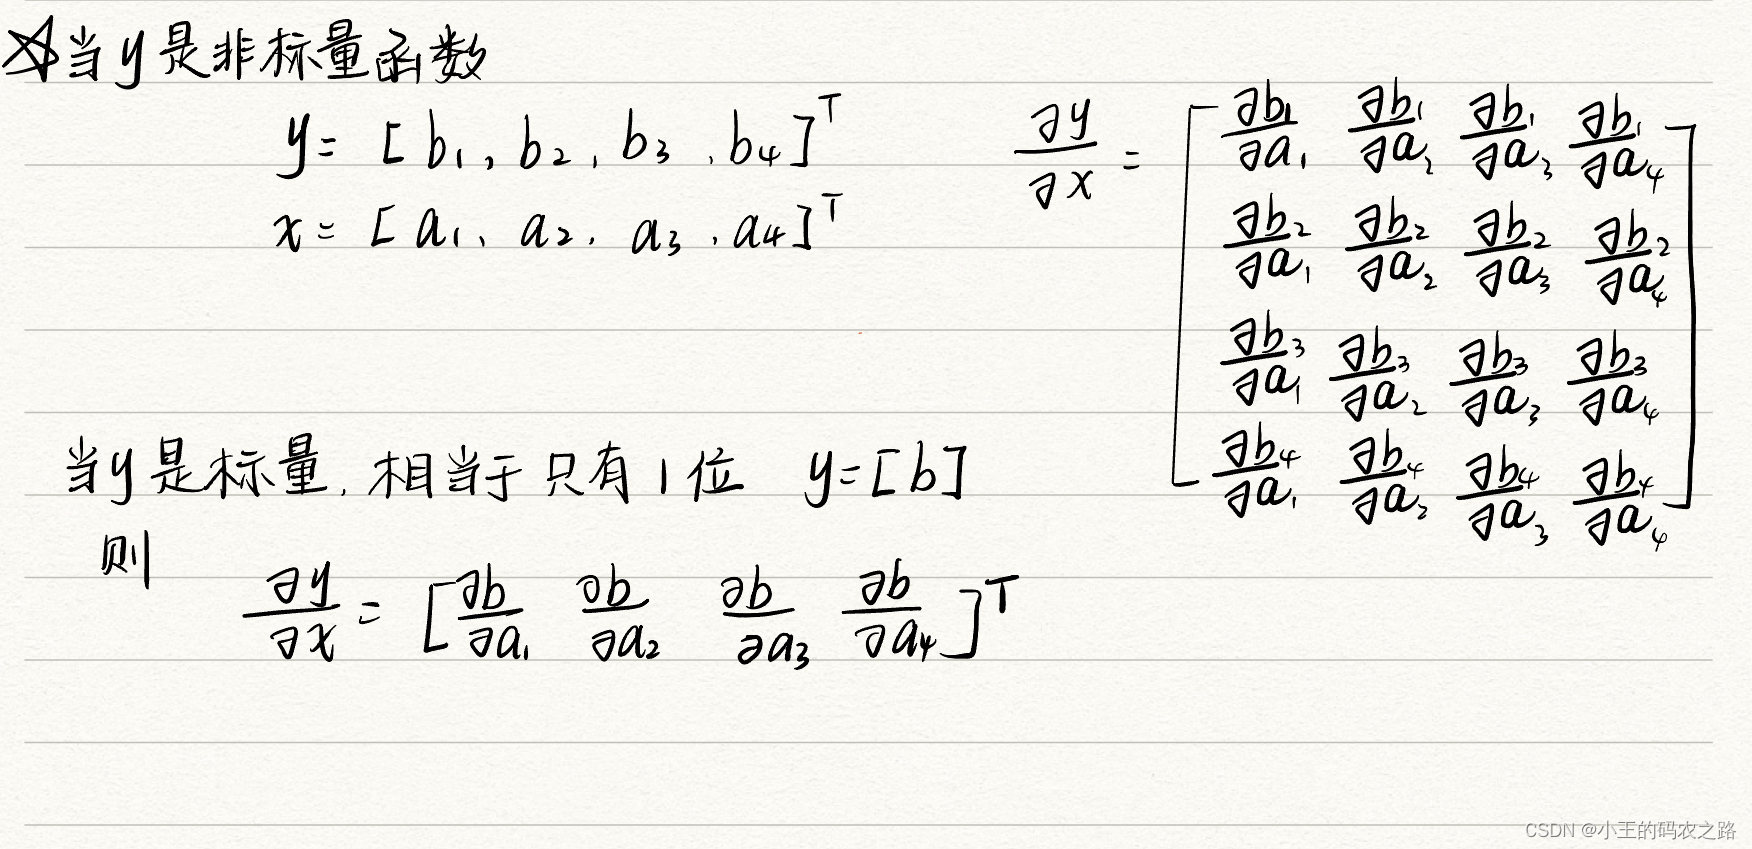 当y是非标量函数
y = [b₁, b₂, b₃, b₄]ᵀ
x = [a₁, a₂, a₃, a₄]ᵀ
∂y/∂x = [∂b₁/∂a₁ ∂b₁/∂a₂ ∂b₁/∂a₃ ∂b₁/∂a₄
∂b₂/∂a₁ ∂b₂/∂a₂ ∂b₂/∂a₃ ∂b₂/∂a₄
∂b₃/∂a₁ ∂b₃/∂a₂ ∂b₃/∂a₃ ∂b₃/∂a₄
∂b₄/∂a₁ ∂b₄/∂a₂ ∂b₄/∂a₃ ∂b₄/∂a₄]
当y是标量, 相当于只有1位 y=[b]
则
∂y/∂x = [∂b/∂a₁ ∂b/∂a₂ ∂b/∂a₃ ∂b/∂a₄]ᵀ
CSDN @小王的码农之路